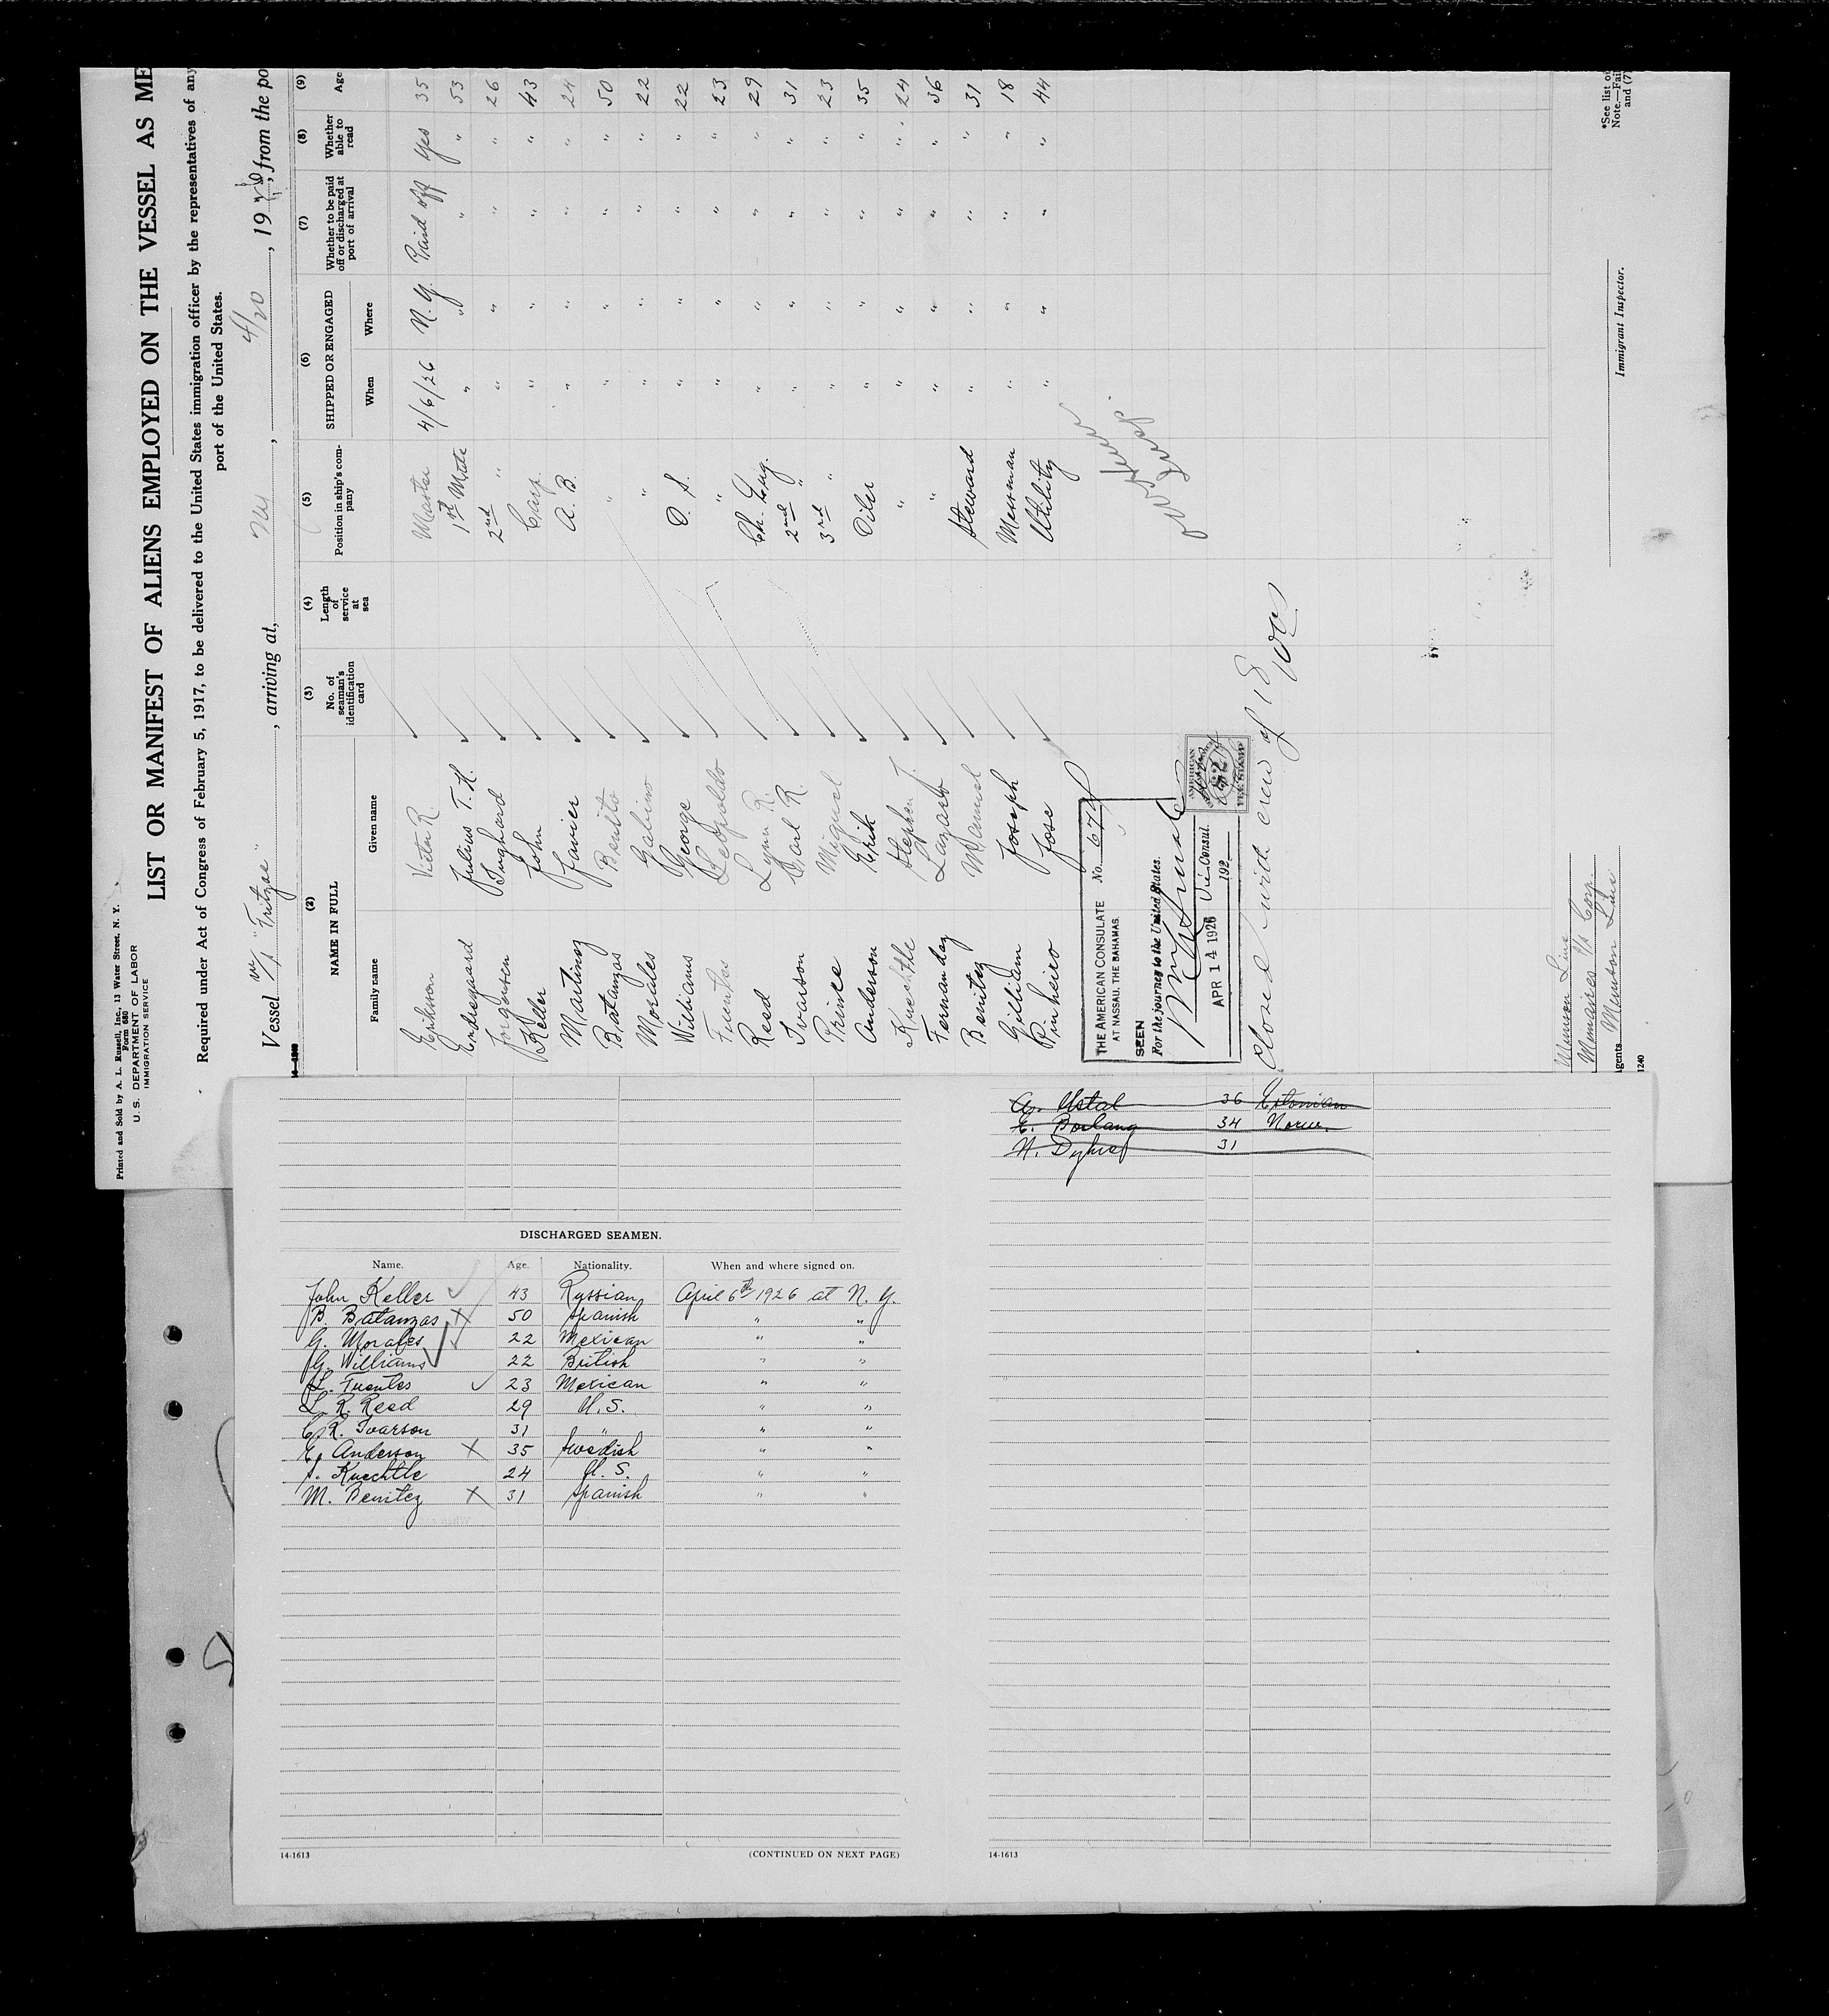 Printed and Sold by A. L. Russell, Inc., 13 Water Street, N. Y.
Form 680
U. S. DEPARTMENT OF LABOR
IMMIGRATION SERVICE
LIST OR MANIFEST OF ALIENS EMPLOYED ON THE VESSEL AS ME
Required under Act of Congress of February 5, 1917, to be delivered to the United States immigration officer by the representatives of any
port of the United States.
Vessel "Fritzoe", arriving at, , 4/20, 1926, from the po
(2) (3) (4) (5) (6) (7) (8) (9)
NAME IN FULL No. of seaman's identification card Length of service at sea Position in ship's company SHIPPED OR ENGAGED Whether to be paid off or discharged at port of arrival Whether able to read Age
Family name Given name When Where
Erikson Victor R. Master 4/6/26 N. Y. Paid off Yes 35
Endregaard Julius T. H. 1st Mate " " " " 53
Jorgensen Inghard 2nd " " " " " 26
Keller John Carp. " " " " 43
Martinez Javier A. B. " " " " 24
Batanzos Benito " " " " " 50
Morales Galino " " " " " 22
Williams George O. S. " " " " 22
Fuentes Leopoldo " " " " " 23
Reed Lynn R. Ch. Eng. " " " " 29
Ivarson Carl R. 2nd " " " " " 31
Prince Miguel 3rd " " " " " 23
Anderson Erik Oiler " " " " 35
Knechtle Stephen J. " " " " " 24
Fernandez Lazaro " " " " " 36
Benitez Manuel Steward " " " " 31
Gilliam Joseph Messman " " " " 18
Pinheiro Jose Utility " " " " 44
THE AMERICAN CONSULATE No. 674
AT NASSAU, THE BAHAMAS.
SEEN
For the journey to the United States.
Vice Consul
APR 14 1926 192
AMERICAN
FEE STAMP
Closed with crew of 18
Munson Line
Agents Munson Line
1240
Immigrant Inspector.
*See list of
Note.—Fail
and (7)
DISCHARGED SEAMEN.
Name. Age. Nationality. When and where signed on.
John Keller 43 Ryssian April 6th 1926 at N. Y.
B. Batanzos 50 Spanish " "
G. Morales 22 Mexican " "
G. Williams 22 British " "
L. Fuentes 23 Mexican " "
L. R. Reed 29 U. S. " "
C. R. Ivarson 31 " " "
E. Anderson 35 Swedish " "
S. Knechtle 24 U. S. " "
M. Benitez 31 Spanish " "
14-1613 (CONTINUED ON NEXT PAGE)
A. Ustal 36 Estonian
E. Borlang 34 Norw.
N. 31
14-1613